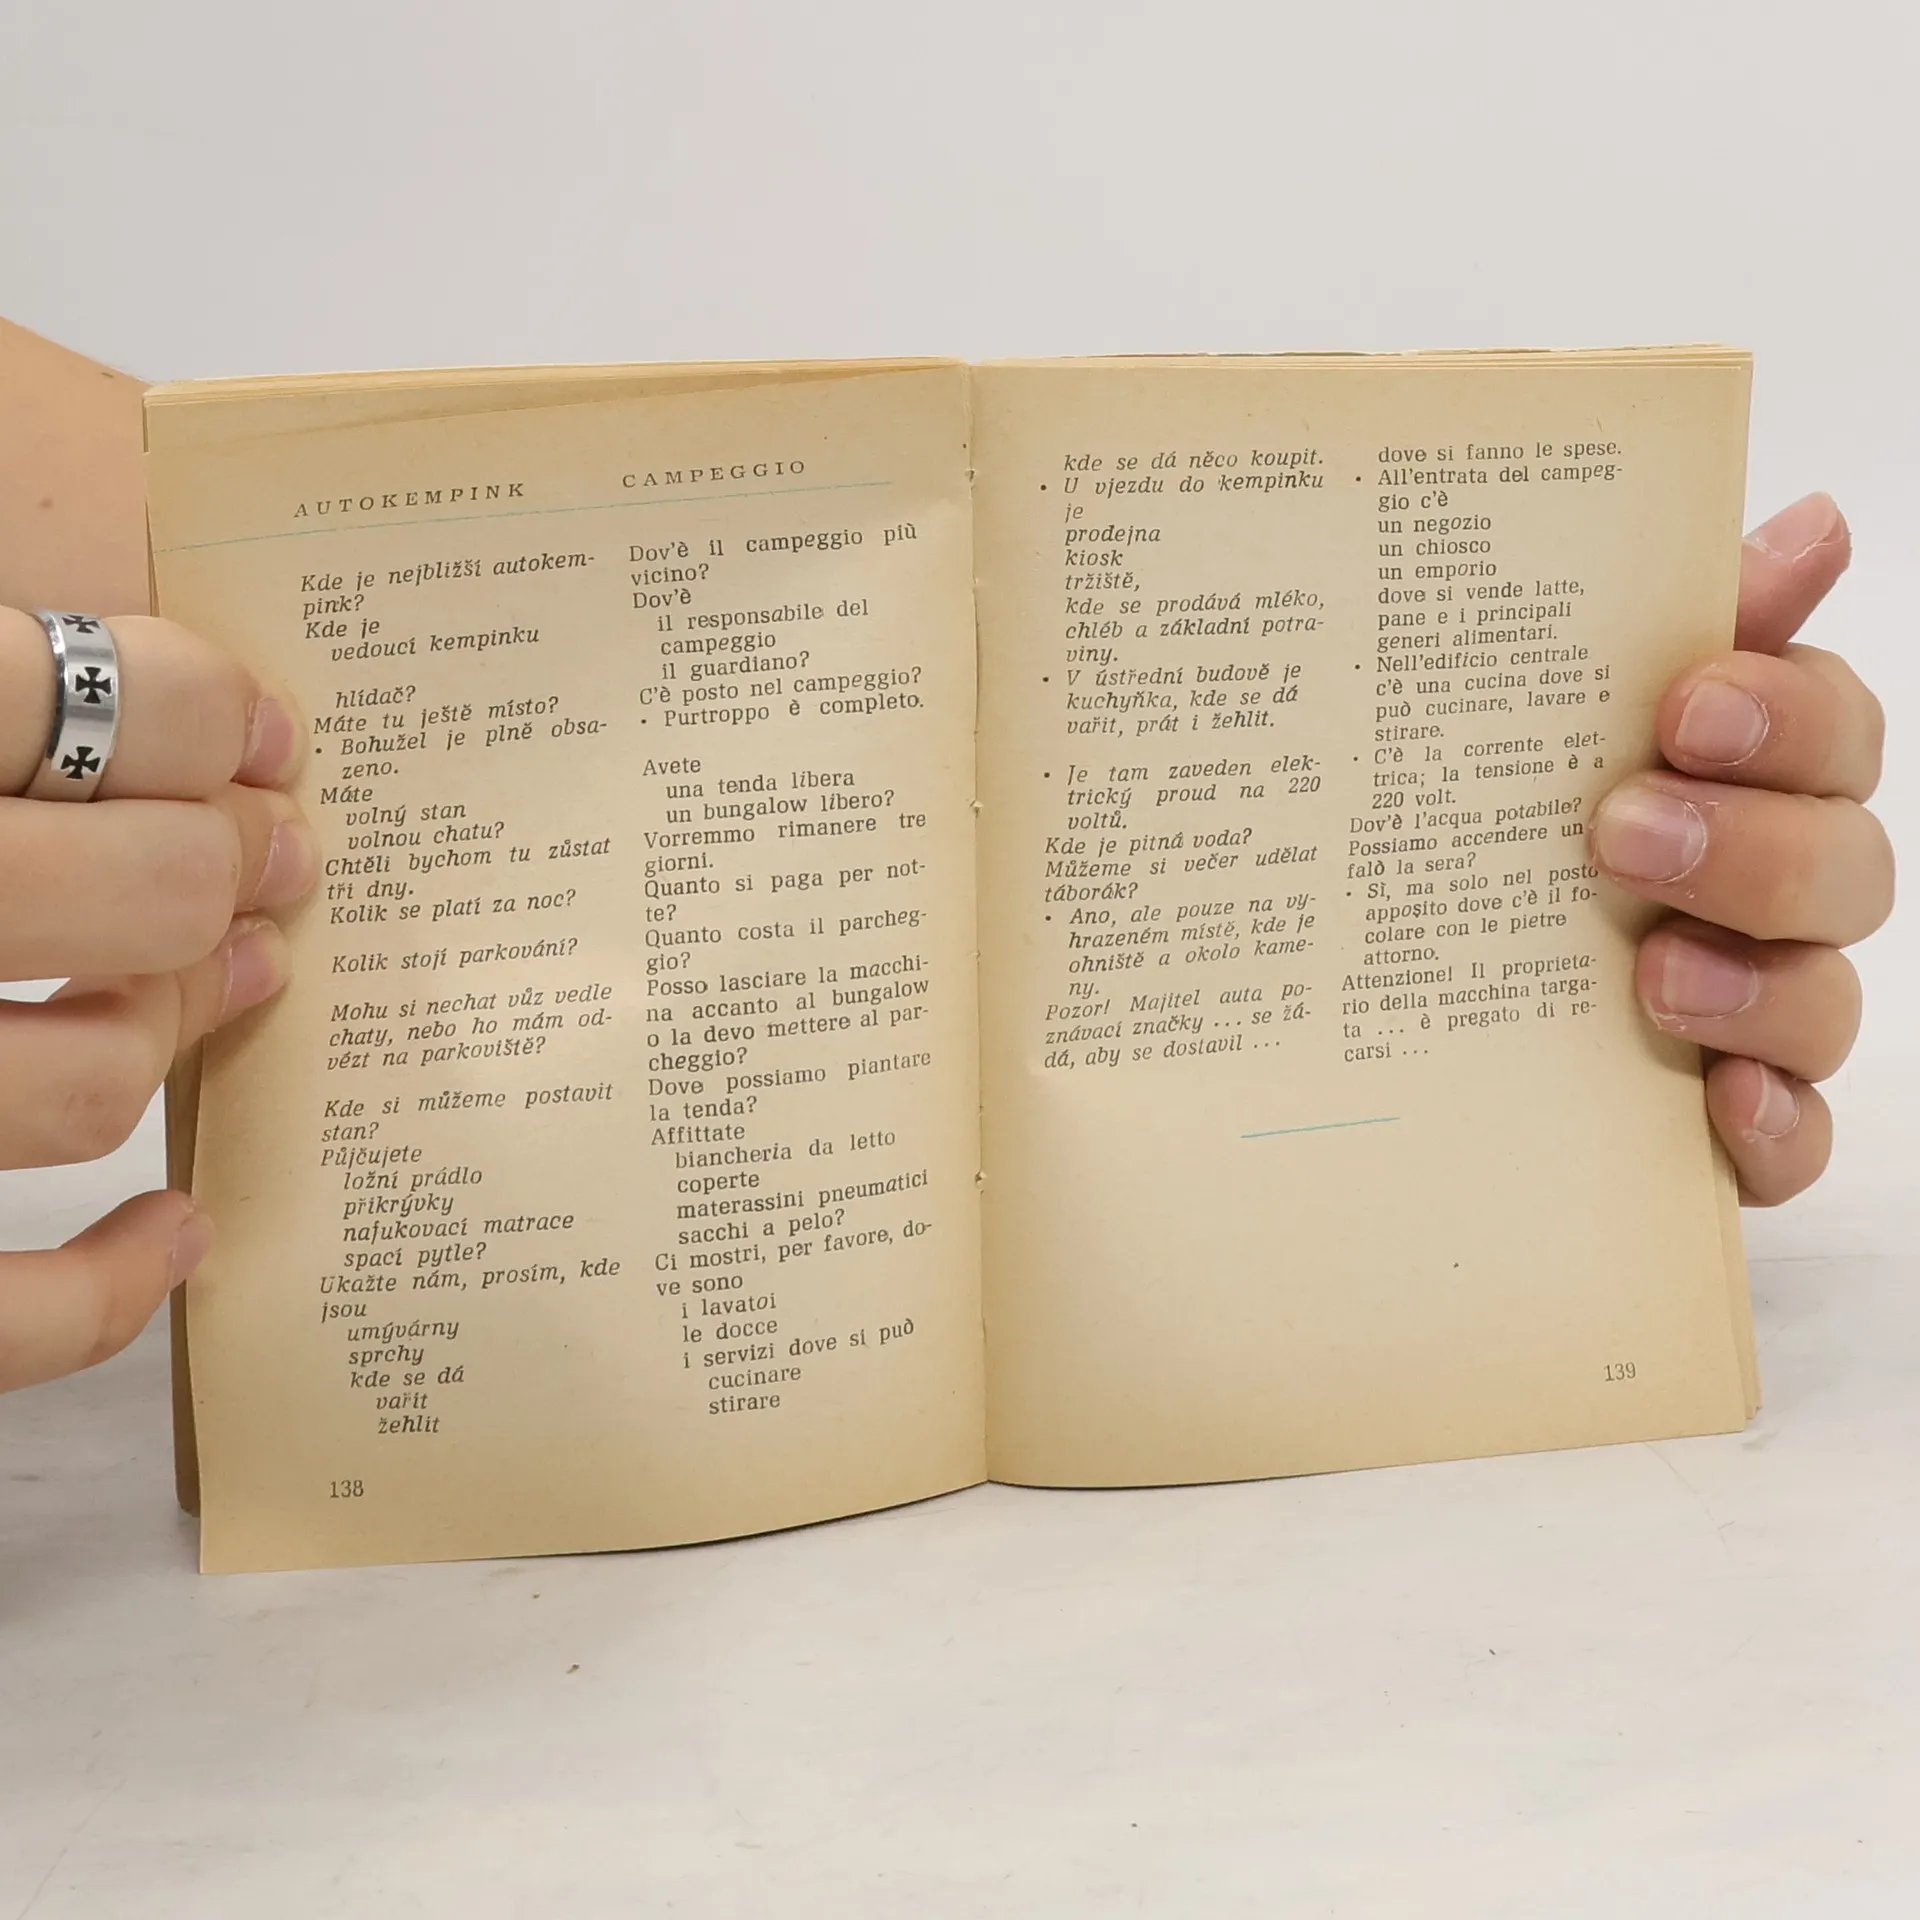 AUTOKEMPINK
Kde je nejbližší autokem-
pink?
Kde je
vedoucí kempinku
hlídač?
Máte tu ještě místo?
• Bohužel je plně obsa-
zeno.
Máte
volný stan
volnou chatu?
Chtěli bychom tu zůstat
tři dny.
Kolik se platí za noc?
Kolik stojí parkování?
Mohu si nechat vůz vedle
chaty, nebo ho mám od-
vézt na parkoviště?
Kde si můžeme postavit
stan?
Půjčujete
ložní prádlo
přikrývky
nafukovací matrace
spací pytle?
Ukažte nám, prosím, kde
jsou
umývárny
sprchy
kde se dá
vařit
žehlit
138
CAMPEGGIO
Dov'è il campeggio più
vicino?
Dov'è
il responsabile del
campeggio
il guardiano?
C'è posto nel campeggio?
• Purtroppo è completo.
Avete
una tenda libera
un bungalow libero?
Vorremmo rimanere tre
giorni.
Quanto si paga per not-
te?
Quanto costa il parcheg-
gio?
Posso lasciare la macchi-
na accanto al bungalow
o la devo mettere al par-
cheggio?
Dove possiamo piantare
la tenda?
Affittate
biancheria da letto
coperte
materassini pneumatici
sacchi a pelo?
Ci mostri, per favore, do-
ve sono
i lavatoi
le docce
i servizi dove si può
cucinare
stirare
kde se dá něco koupit.
• U vjezdu do kempinku
je
prodejna
kiosk
tržiště,
kde se prodává mléko,
chléb a základní potra-
viny.
• V ústřední budově je
kuchyňka, kde se dá
vařit, prát i žehlit.
• Je tam zaveden elek-
trický proud na 220
voltů.
Kde je pitná voda?
Můžeme si večer udělat
táborák?
• Ano, ale pouze na vy-
hrazeném místě, kde je
ohniště a okolo kame-
ny.
Pozor! Majitel auta po-
znávací značky ... se žá-
dá, aby se dostavil ...
dove si fanno le spese.
• All'entrata del campeg-
gio c'è
un negozio
un chiosco
un emporio
dove si vende latte,
pane e i principali
generi alimentari.
• Nell'edificio centrale
c'è una cucina dove si
può cucinare, lavare e
stirare.
• C'è la corrente elet-
trica; la tensione è a
220 volt.
Dov'è l'acqua potabile?
Possiamo accendere un
falò la sera?
• Sì, ma solo nel posto
apposito dove c'è il fo-
colare con le pietre
attorno.
Attenzione! Il proprieta-
rio della macchina targa-
ta ... è pregato di re-
carsi ...
139